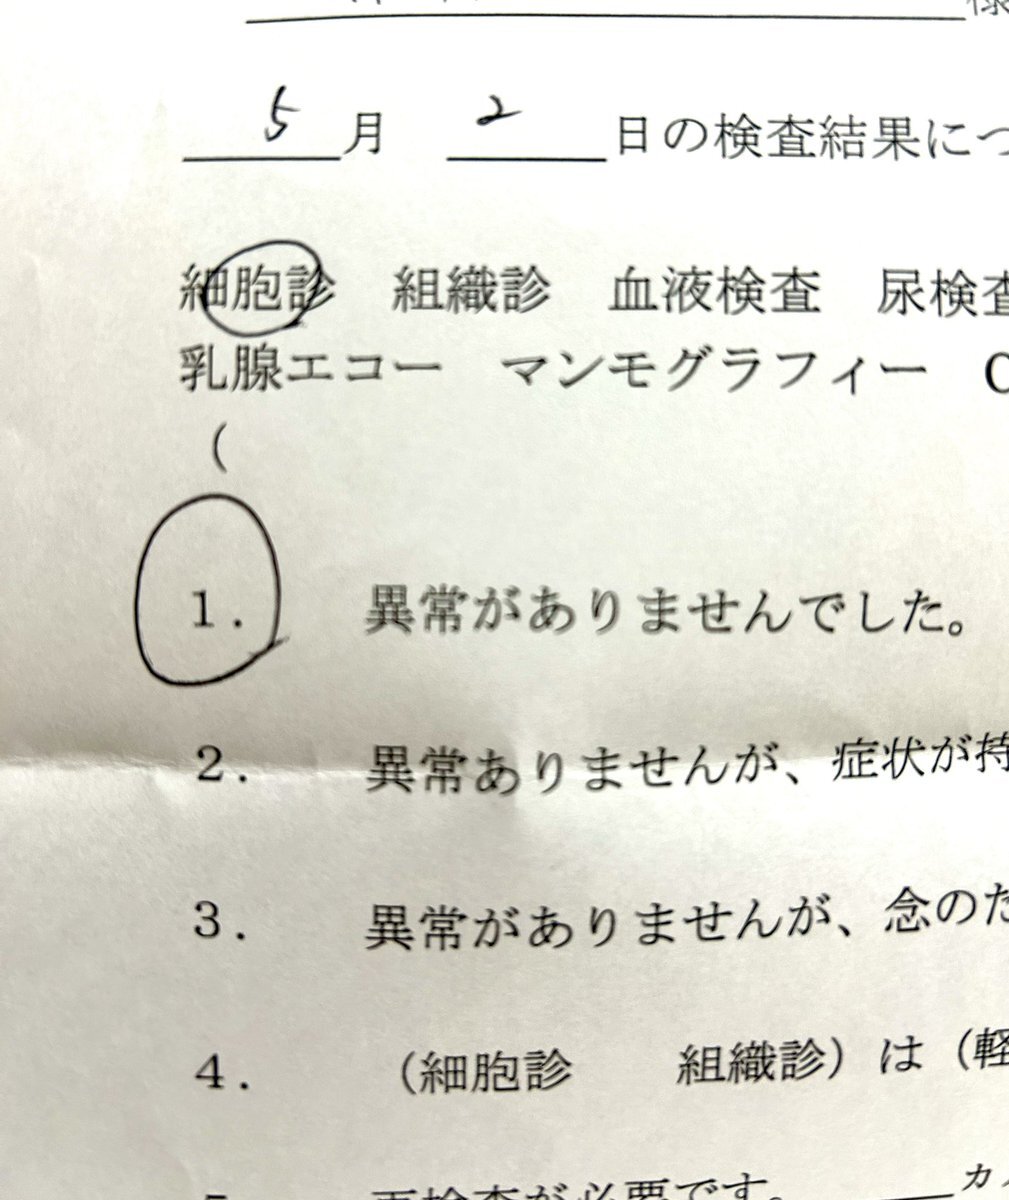 様
5月 2日の検査結果につ
細胞診 組織診 血液検査 尿検査
乳腺エコー マンモグラフィー C
(
1. 異常がありませんでした。
2. 異常ありませんが、症状が持
3. 異常がありませんが、念のた
4. (細胞診 組織診)は(軽
5. 再検査が必要です。 カ